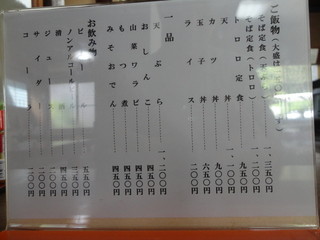 ご飯物(大盛は
そば定食(天ぷら)……一、三五〇円
そば定食(トロロ)……一、二〇〇円
トロロ定食……九五〇円
天丼……一、一〇〇円
カツ丼……九〇〇円
玉子丼……六五〇円
ライス……二五〇円
一品
天ぷら……一、二〇〇円
おしんこ……四五〇円
山菜ワラビ……四五〇円
もつ煮……四五〇円
みそおでん……四五〇円
お飲み物
ビール……五五〇円
ノンアルコールビール……四五〇円
清酒……四五〇円
ジュース……二〇〇円
サイダー……二〇〇円
コーラ……二〇〇円